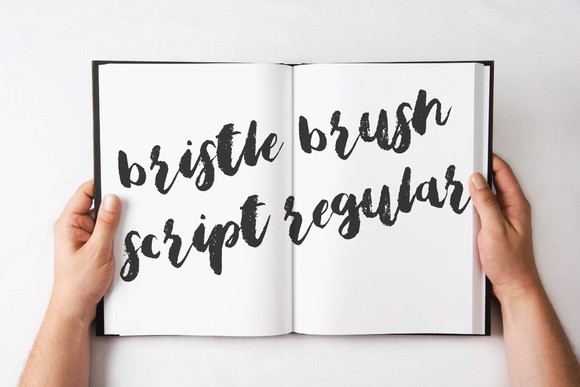 bristle brush
script regular